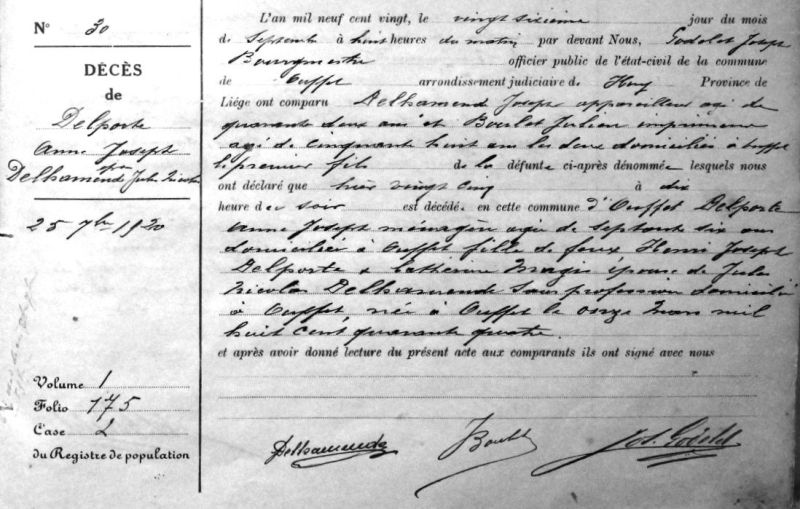 N° 30
DÉCÈS
de
Delporte
Anne Joseph
Delhamende Jules Nicolas
25 7bre 1920
Volume 1
Folio 175
Case 2
du Registre de population
L'an mil neuf cent vingt, le vingt sixième jour du mois
de Septembre à huit heures du matin par devant Nous, Godelet Joseph
Bourgmestre officier public de l'état-civil de la commune
de Ouffet arrondissement judiciaire de Huy Province de
Liége ont comparu Delhamende Joseph appareilleur agé de
quarante deux ans et Boulet Julien imprimeur
agé de cinquant huit ans les deux domiciliés à Ouffet
le premier fils de la défunte ci-après dénommée lesquels nous
ont déclaré que hier vingt cinq à dix
heure du soir est décédée en cette commune d'Ouffet Delporte
Anne Joseph ménagère agée de septante six ans
domiciliée à Ouffet fille de feux Henri Joseph
Delporte & Catherine Magis épouse de Jules
Nicolas Delhamende sans profession domicilié
à Ouffet née à Ouffet le onze mars mil
huit cent quarante quatre.
et après avoir donné lecture du présent acte aux comparants ils ont signé avec nous
Delhamende Boulet Jos. Godelet